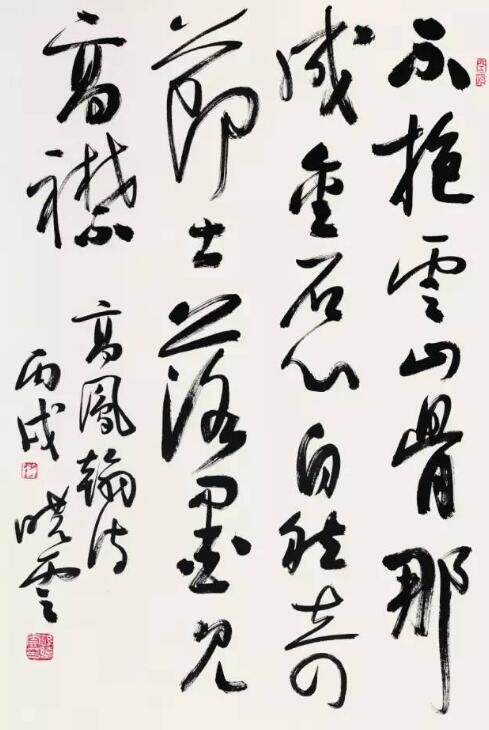 不抱雲山骨那
成金石心自然奇
節士落墨見
高襟
高鳳翰诗
丙戌
曉雲